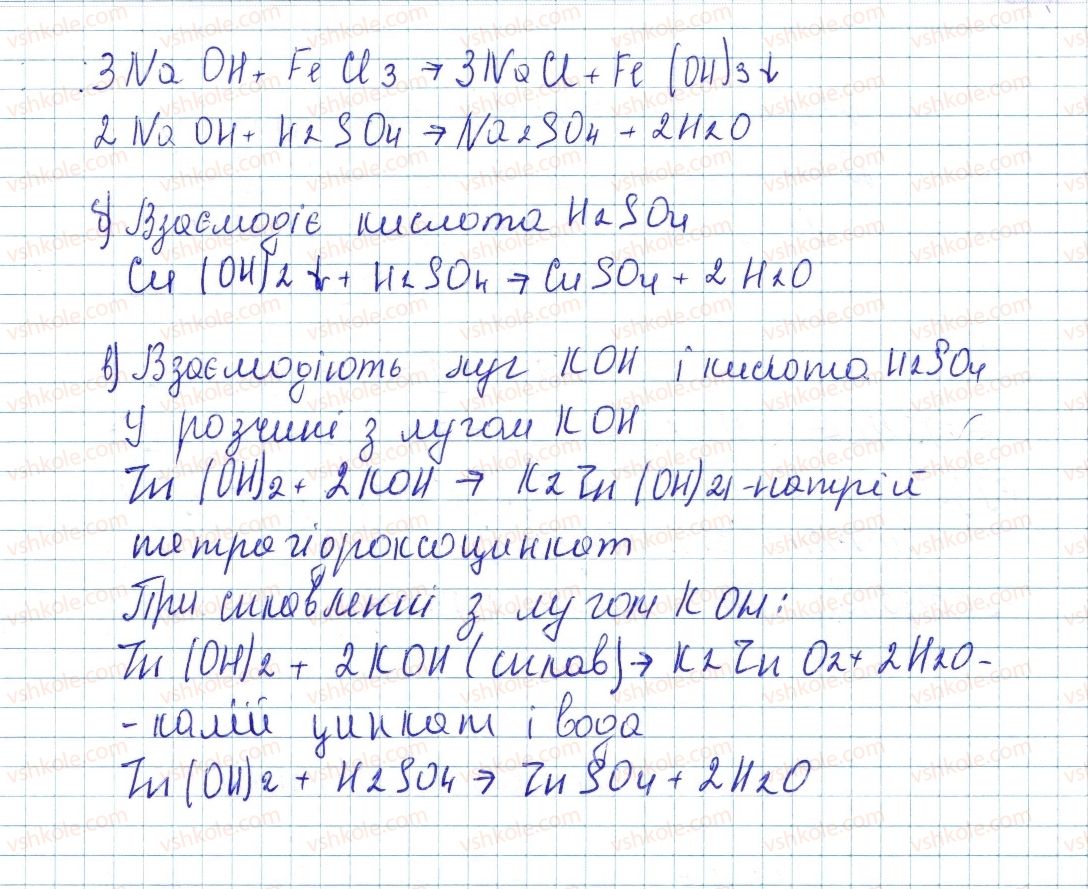 3NaOH + FeCl3 → 3NaCl + Fe(OH)3↓
2NaOH + H2SO4 → Na2SO4 + 2H2O
б) Взаємодіє кислота H2SO4
Cu(OH)2↓ + H2SO4 → CuSO4 + 2H2O
в) Взаємодіють луг KOH і кислота H2SO4
У розчині з лугом KOH
Zn(OH)2 + 2KOH → K2Zn(OH)4 - натрій
тетрагідроксоцинкат
При сплавленні з лугом KOH:
Zn(OH)2 + 2KOH (сплав) → K2ZnO2 + 2H2O -
- калій цинкат і вода
Zn(OH)2 + H2SO4 → ZnSO4 + 2H2O